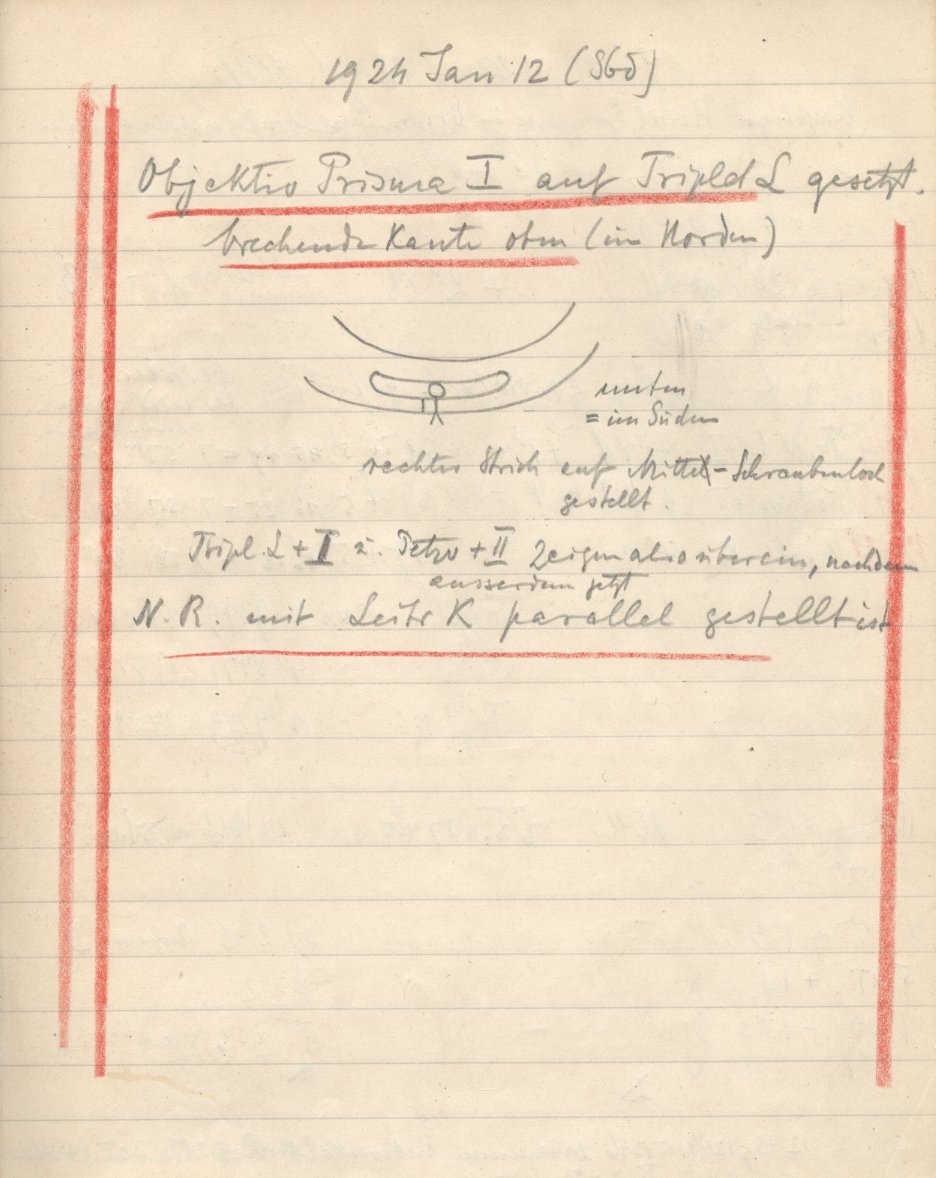 1924 Jan 12 (Sbd)
Objektiv Prisma I auf Triplet L gesetzt.
brechende Kante oben (im Norden)
unten
= im Süden
rechter Strich auf Mittel-Schraubenloch
gestellt.
Tripl. L + I u. Petzv + II zeigen also überein, nachdem
ausserdem jetzt
N.R. mit Leitr K parallel gestellt ist